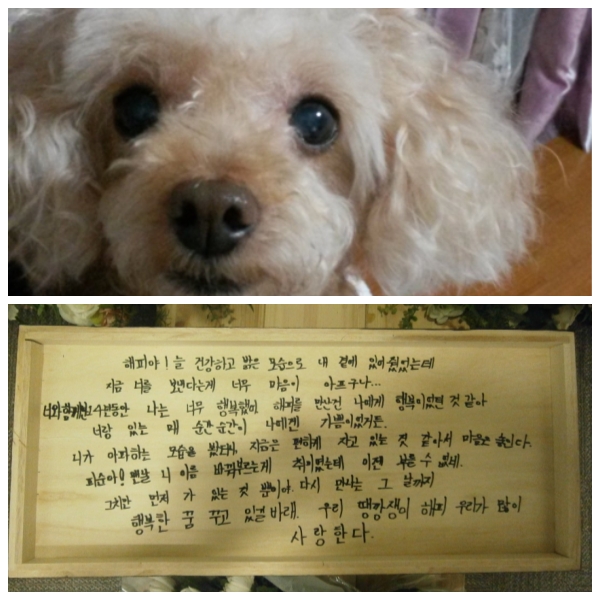 해피야! 늘 건강하고 밝은 모습으로 내 곁에 있어줬었는데
지금 너를 보낸다는게 너무 마음이 아프구나...
너와함께한 14년동안 나는 너무 행복했어 해피를 만난건 나에겐 행복이었던 것 같아
너랑 있는 매 순간순간이 나에겐 기쁨이었거든.
니가 아파하는 모습을 봤는데, 지금은 편하게 자고 있는 것 같아서 마음은 놓인다.
피순아! 맨날 니 이름 바꿔부르는게 취미였는데 이젠 부를 수 없네.
그치만 먼저 가 있는 것 뿐이야. 다시 만나는 그 날까지
행복한 꿈 꾸고 있길바래. 우리 땡깡쟁이 해피 우리가 많이
사랑한다.